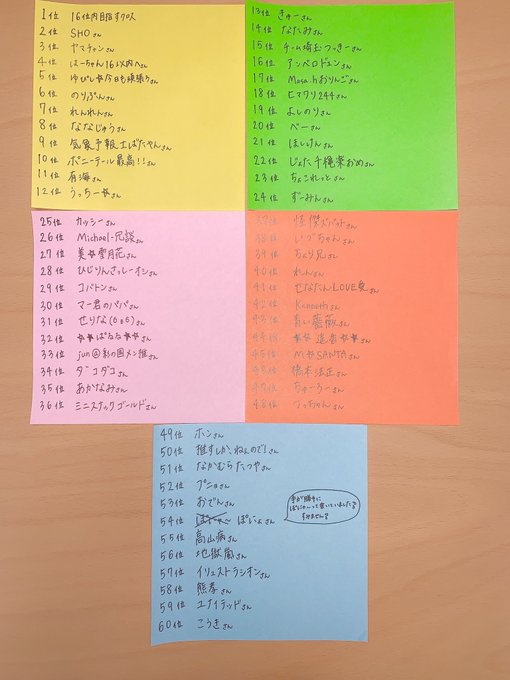 1位 16位内目指すクロス
2位 SHOさん
3位 ヤマチャンさん
4位 はーちゃん16以内へさん
5位 ゆぴし☆今日も頑張ろさん
6位 のりぷんさん
7位 れんれんさん
8位 ななじゅうさん
9位 気象予報士ばたやんさん
10位 ポニーテール最高!!さん
11位 有海さん
12位 うっちー☆さん
13位 きゅーさん
14位 なたみさん
15位 チーム埼玉つっきーさん
16位 アンペロドュンさん
17位 Masa.hおりんごさん
18位 ヒマワリ244さん
19位 よしのりさん
20位 べーさん
21位 ほししけんさん
22位 じょた千穐楽おめさん
23位 ちょこれっとさん
24位 ずーみんさん
25位 カッシーさん
26位 Michael-冗談さん
27位 美☆雪月花さん
28位 ひじりんさっしーオシさん
29位 コバトンさん
30位 マー君のパパさん
31位 せりな(6e6)さん
32位 ☆☆ぱるる☆☆さん
33位 jun@彩の国メン推さん
34位 ダコダコさん
35位 あかなみさん
36位 ミニスナックゴールドさん
37位 怪傑ズバットさん
38位 いづちゃんさん
39位 ちょり兄さん
40位 れんさん
41位 せなたんLOVE愛さん
42位 Kennethさん
43位 青い薔薇さん
44位 ☆☆進者☆☆さん
45位 M☆SANTAさん
46位 橋本法正さん
47位 ちゅーろーさん
48位 てっちゃんさん
49位 ホンさん
50位 推すしかねぇんので!さん
51位 なかむらたつやさん
52位 プニョさん
53位 おでんさん
54位 ぽにょさん
手が勝手に
ぽにゅ〜って書いていました?
すみません?
55位 高山病さん
56位 地獄嵐さん
57位 イリュストラシオンさん
58位 熊孝さん
59位 ユナイテッドさん
60位 こうきさん